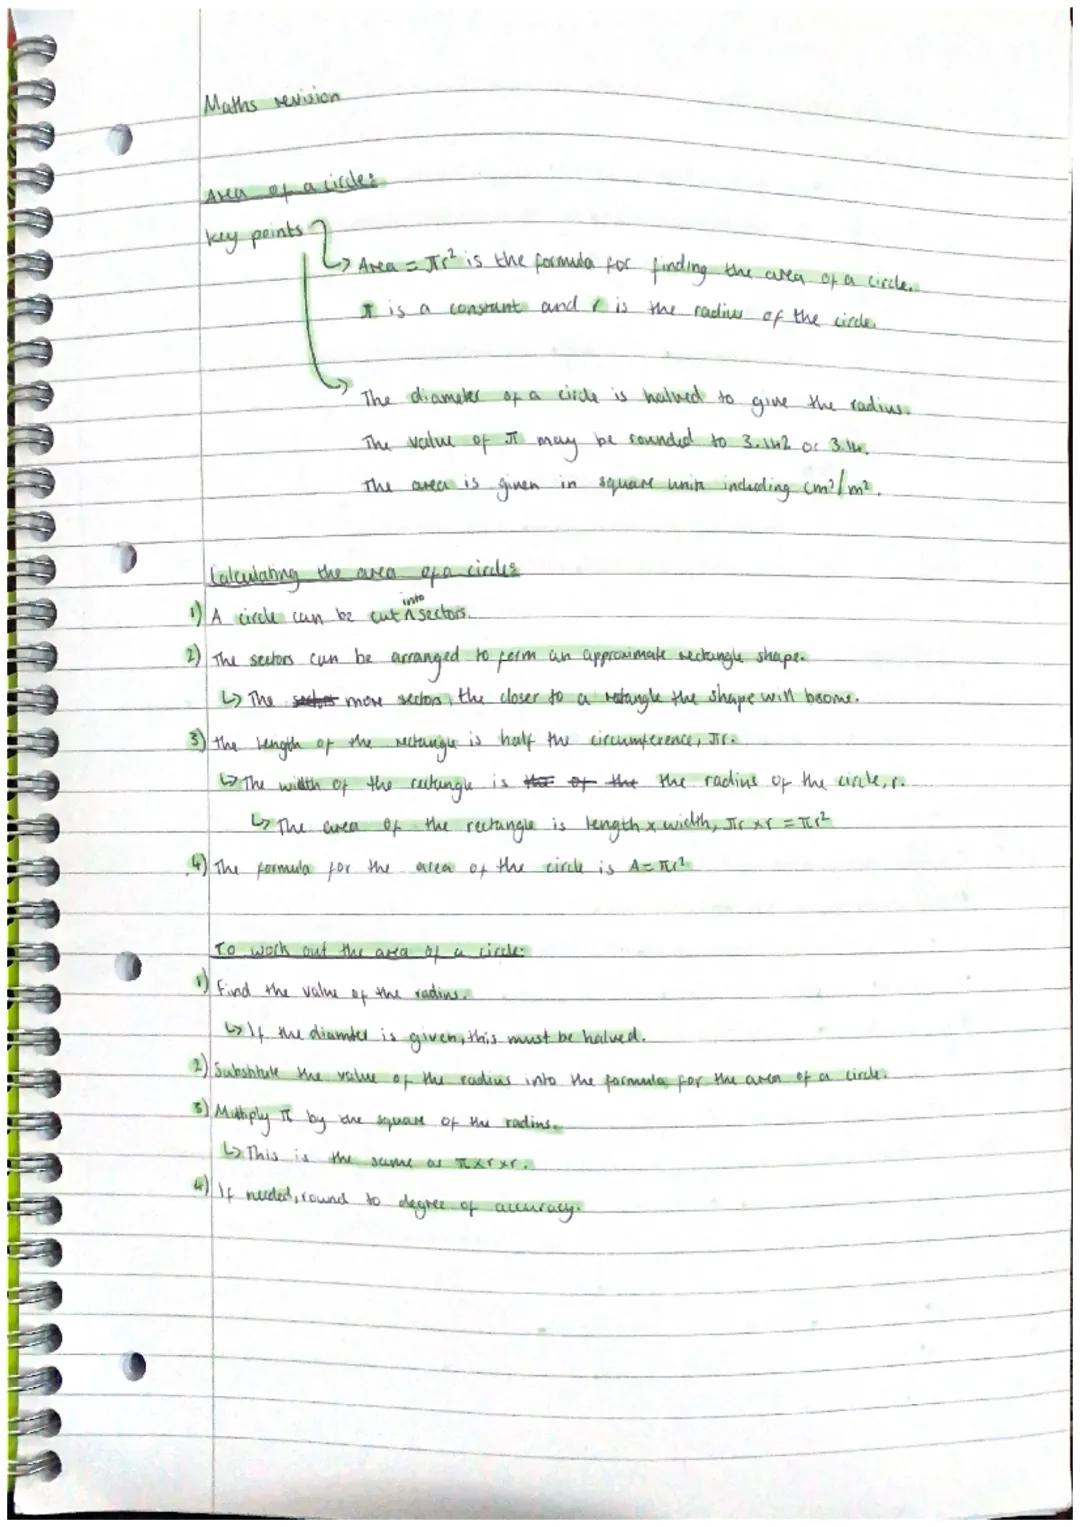 Maths revision
Area of a circle:
key points
↳ Area = πr² is the formula for finding the area of a circle.
π is a constant and r is the radius of the circle.
The diameter of a circle is halved to give the radius.
The value of π may be rounded to 3.142 or 3.14.
The area is given in square units including cm²/m².
Calculating the area of a circle:
1) A circle can be cut into sectors.
2) The sectors can be arranged to form an approximate rectangle shape.
↳ The sectors more sectors, the closer to a retangle the shape will beome.
3) the length of the rectangle is half the circumference, πr.
↳ The width of the rectangle is the of the the radius of the circle, r.
↳ The area of the rectangle is length x width, πr xr = πr²
4) The formula for the area of the circle is A=πr²
To work out the area of a circle:
1) Find the value of the radius.
↳ If the diamter is given, this must be halved.
2) Substitute the value of the radius into the formula for the area of a circle.
3) Multiply π by the square of the radius.
↳ This is the same as πxrxr.
4) If needed, round to degree of accuracy.